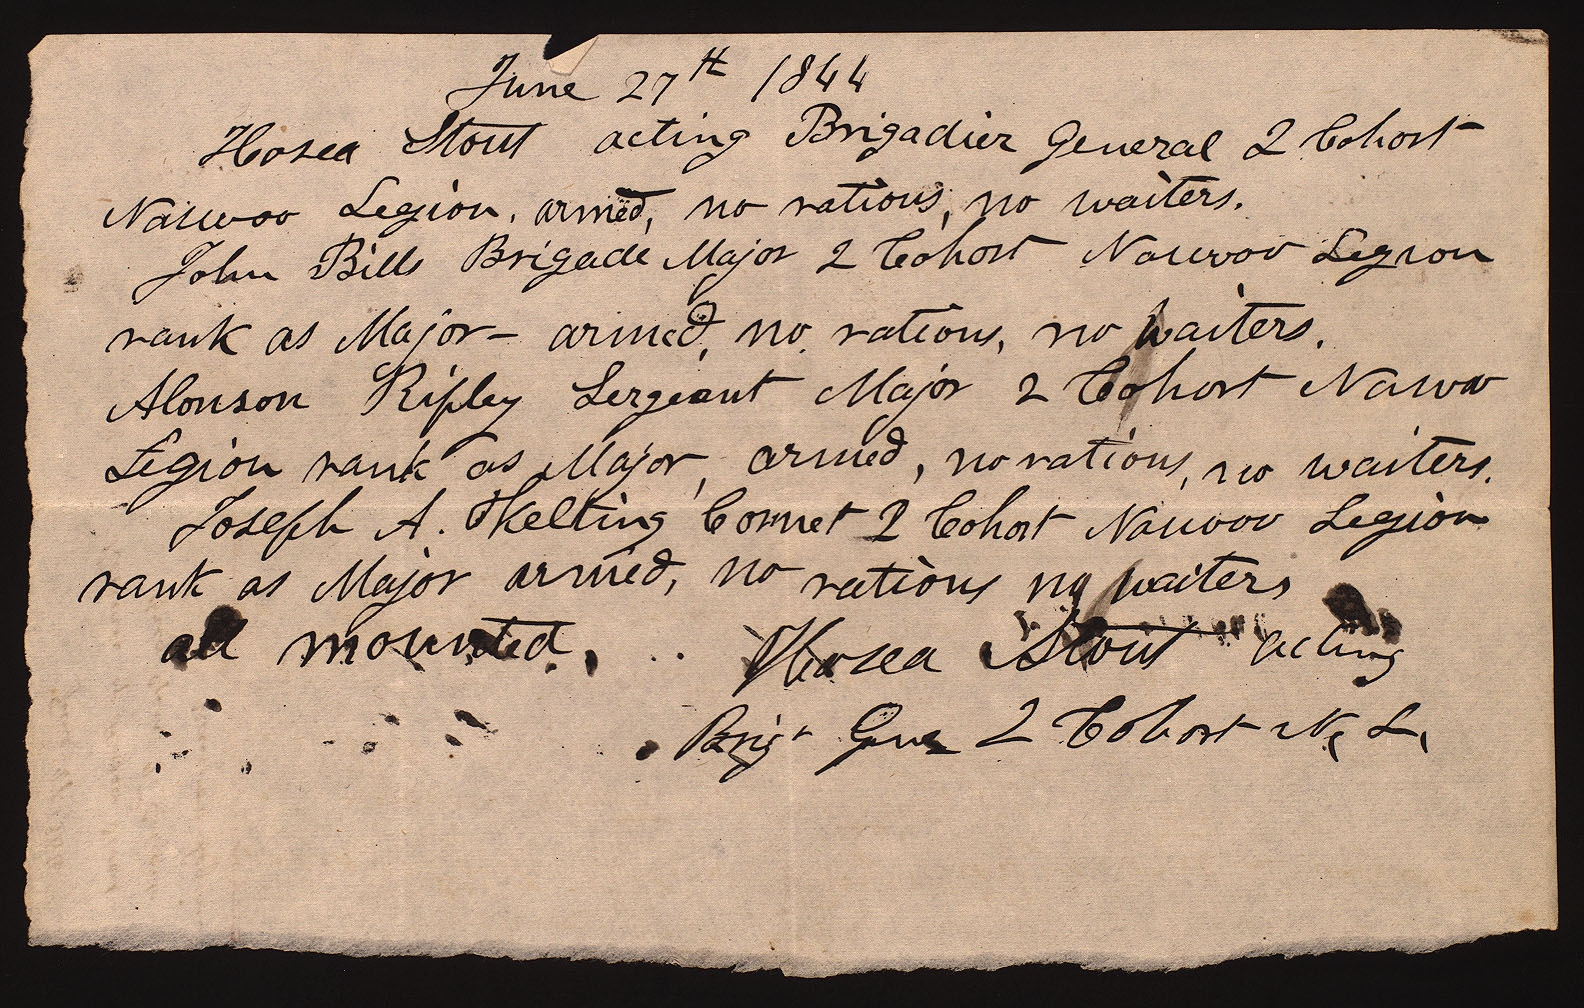 June 27th 1844
Hosea Stout acting Brigadier General 2 Cohort
Nauvoo Legion, armed, no rations, no waiters.
John Bills Brigade Major 2 Cohort Nauvoo Legion
rank as Major – armed, no rations, no waiters.
Alonson Ripley Sergeant Major 2 Cohort Nauvoo
Legion rank as Major, armed, no rations, no waiters.
Joseph A. Kelting Cornet 2 Cohort Nauvoo Legion
rank as Major armed, no rations no waiters
all mounted. Hosea Stout acting
Brigr Gen 2 Cohort N, L,